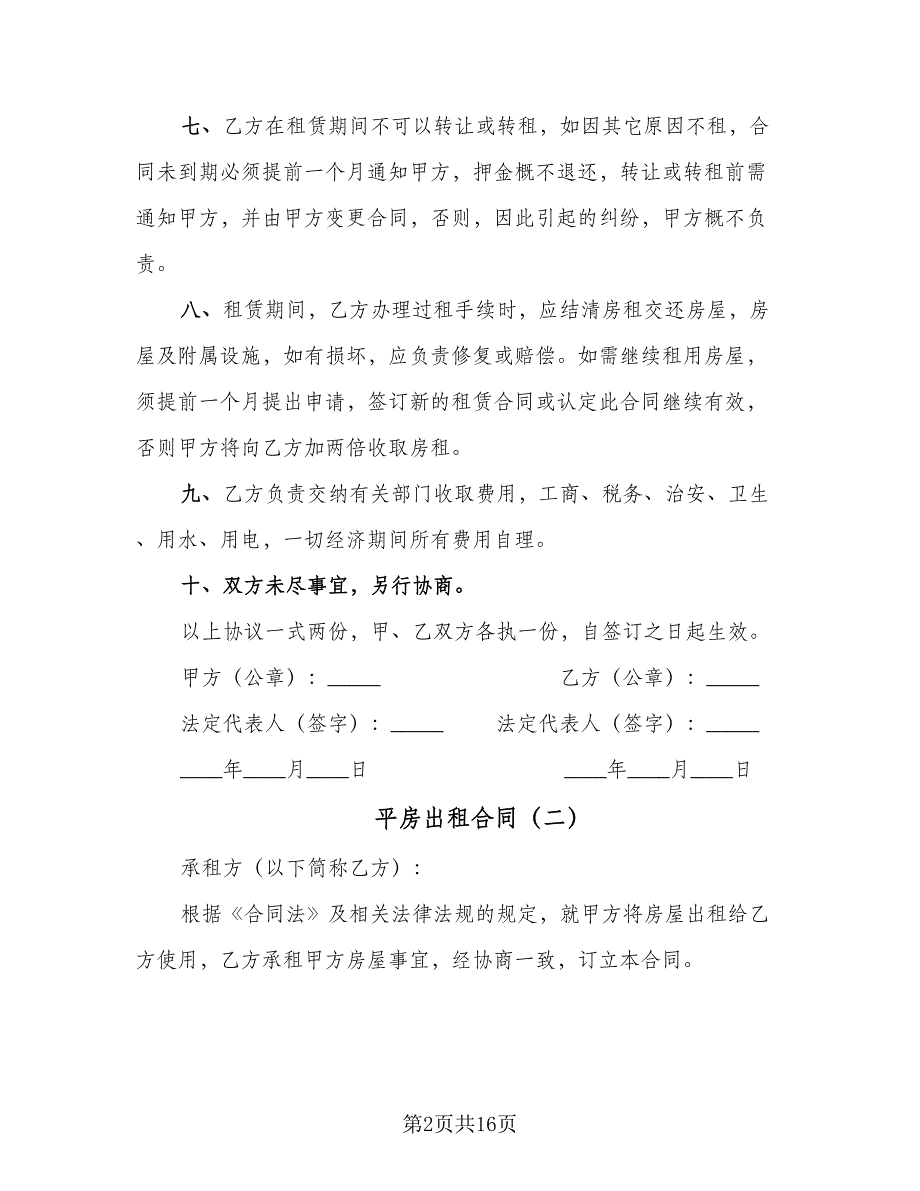 七、乙方在租赁期间不可以转让或转租，如因其它原因不租，合
同未到期必须提前一个月通知甲方，押金概不退还，转让或转租前需
通知甲方，并由甲方变更合同，否则，因此引起的纠纷，甲方概不负
责。
八、租赁期间，乙方办理过租手续时，应结清房租交还房屋，房
屋及附属设施，如有损坏，应负责修复或赔偿。如需继续租用房屋，
须提前一个月提出申请，签订新的租赁合同或认定此合同继续有效，
否则甲方将向乙方加两倍收取房租。
九、乙方负责交纳有关部门收取费用，工商、税务、治安、卫生
、用水、用电，一切经济期间所有费用自理。
十、双方未尽事宜，另行协商。
以上协议一式两份，甲、乙双方各执一份，自签订之日起生效。
甲方（公章）：_____ 乙方（公章）：_____
法定代表人（签字）：_____ 法定代表人（签字）：_____
____年____月____日 ____年____月____日
平房出租合同（二）
承租方（以下简称乙方）：
根据《合同法》及相关法律法规的规定，就甲方将房屋出租给乙
方使用，乙方承租甲方房屋事宜，经协商一致，订立本合同。
第2页共16页